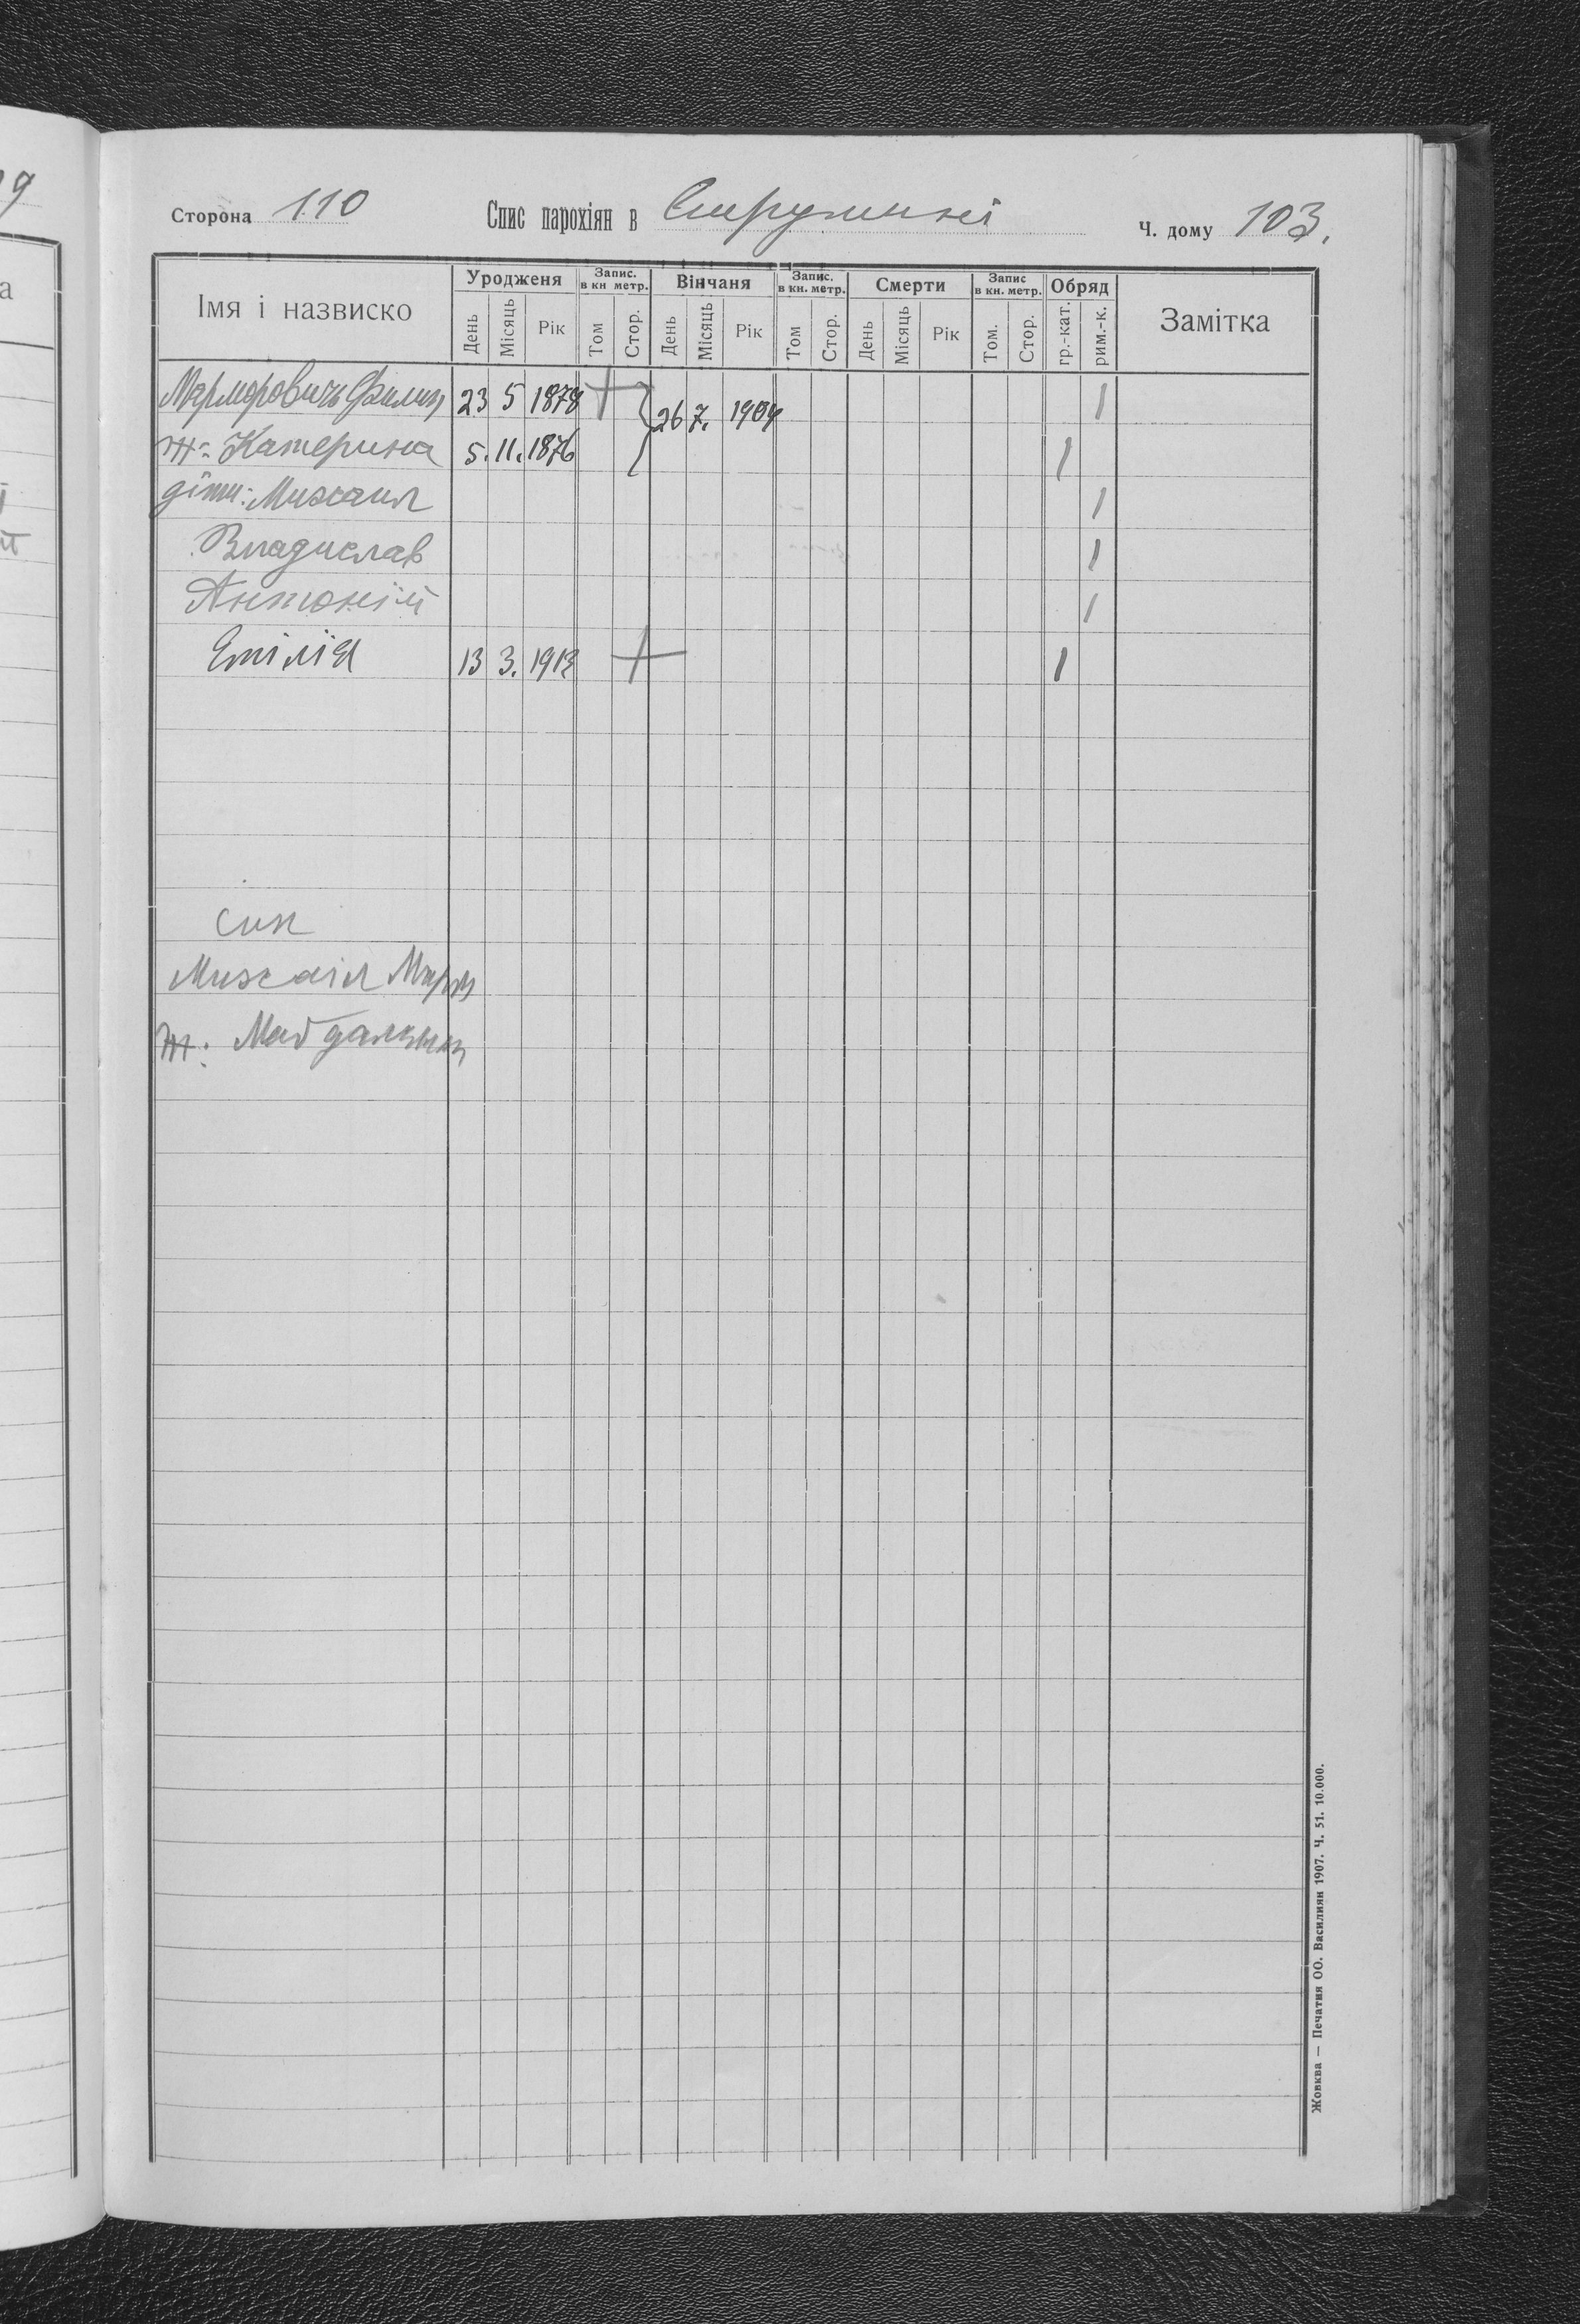 9
а
Сторона 110 Спис парохіян в Струтині Ч. дому 103.
Імя і назвиско Уродженя Запис. в кн метр. Вінчаня Запис. в кн. метр. Смерти Запис в кн. метр. Обряд Замітка
День Місяць Рік Том Стор. День Місяць Рік Том Стор. День Місяць Рік Том. Стор. гр.-кат. рим.-к.
Мармарович Филип 23 5 1878 + } 26 7. 1904 1
ж: Катерина 5. 11. 1876 1
діти: Михаил 1
Владислав 1
Антоній 1
Емілія 13 3. 1913 + 1
син
Михаіл
ж: Магдалина
Жовква — Печатня ОО. Василиян 1907. Ч. 51. 10.000.